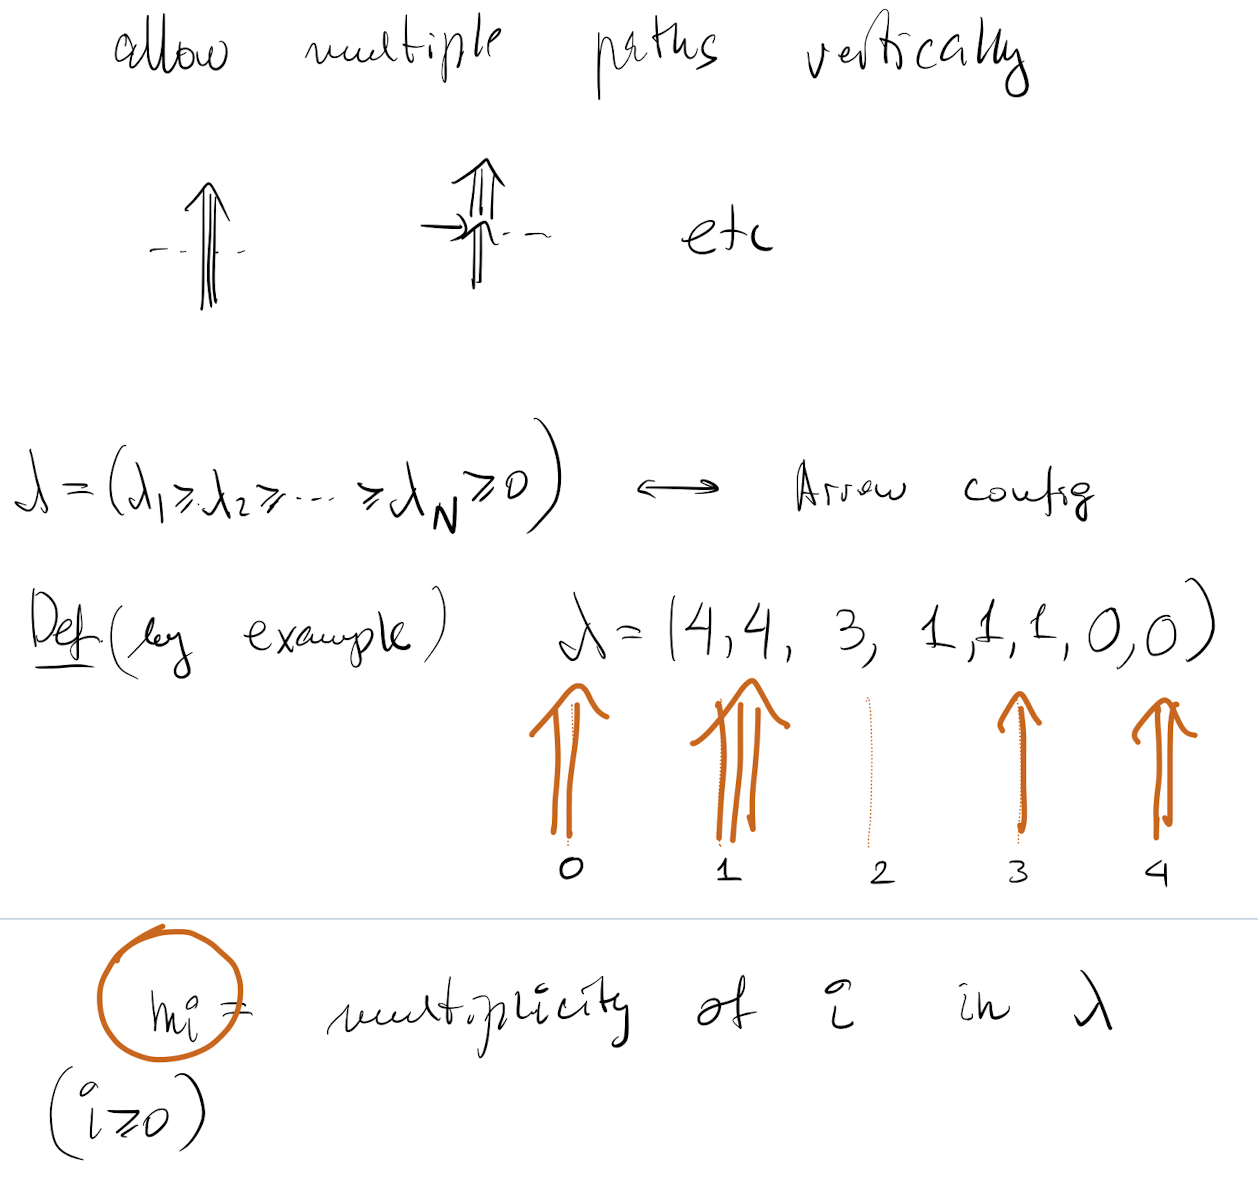 allow multiple paths vertically
etc
λ = (λ₁ ≥ λ₂ ≥ ... ≥ λ_N ≥ 0) ↔ Arrow config
Def (by example) λ = (4,4, 3, 1,1,1,0,0)
0 1 2 3 4
mᵢ = multiplicity of i in λ
(i ≥ 0)